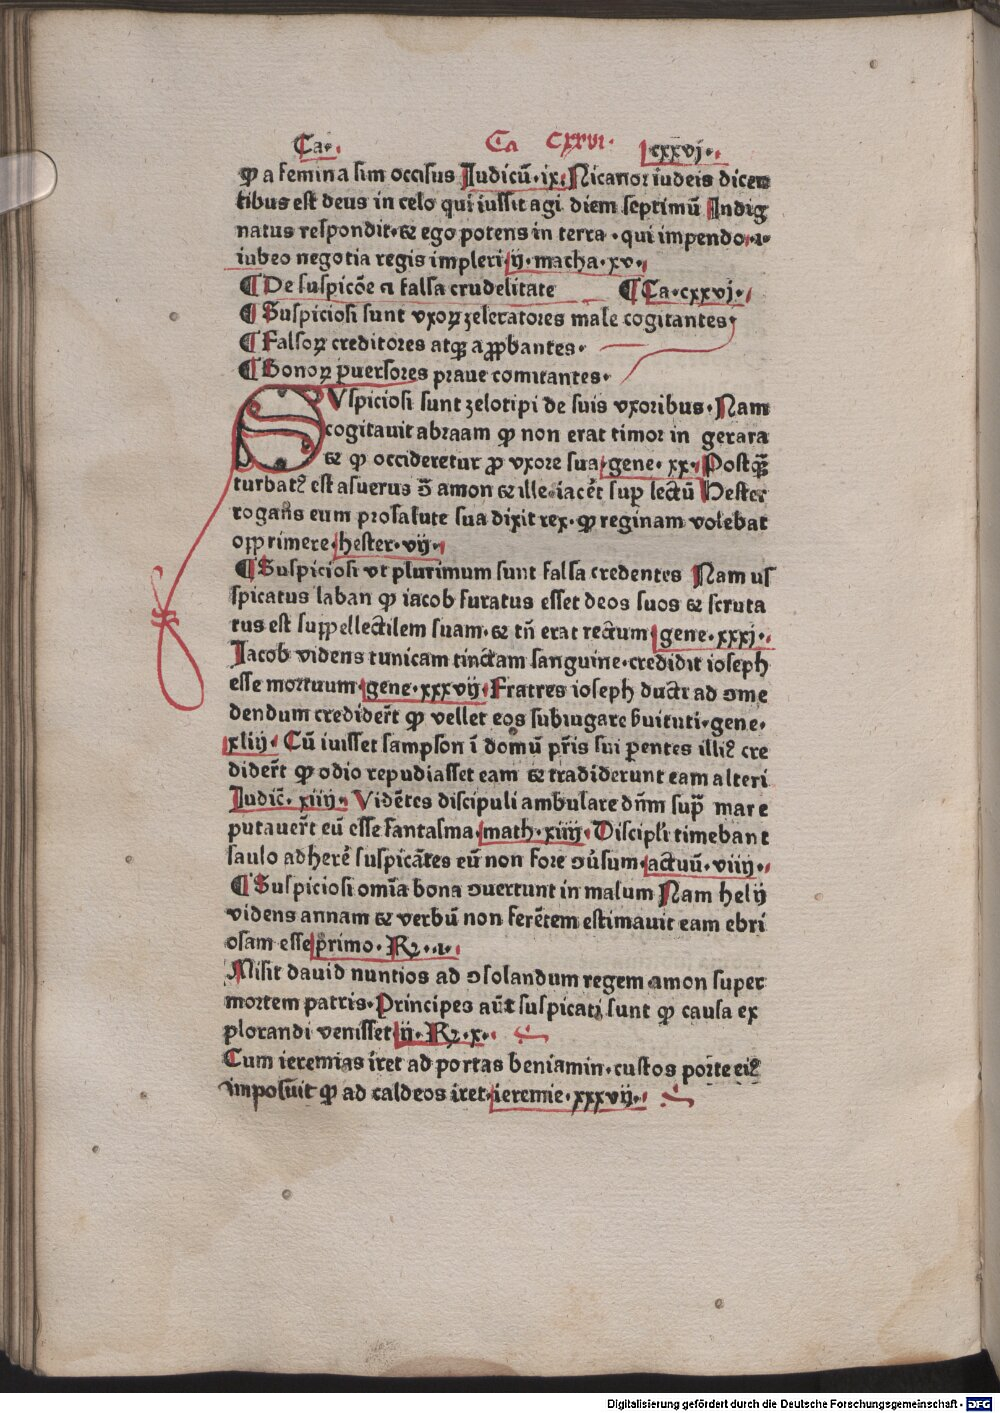 Ca. Ca CXXVI. cxxvj.
ꝙ a femina sim occisus Judicū.ix. Nicanor iudeis dicen
tibus est deus in celo qui iussit agi diem septimū Indig
natus respondit.⁊ ego potens in terra.qui impendo.ı.
iubeo negotia regis impleri ij.macha.xv.
¶ De suspicōe ⁊ falsa crudelitate ¶ Ca.cxxvj.
¶ Suspiciosi sunt vxoꝝ zeleratores male cogitantes.
¶ Falsoꝝ creditores atqꝫ a ꝓpbantes.
¶ Bonoꝝ ꝑuersores praue comitantes.
SVspiciosi sunt zelotipi de suis vxoribus.Nam
cogitauit abraam ꝙ non erat timor in gerara
⁊ ꝙ occideretur ꝓ vxore sua gene.xx. Postqꝫ̄
turbatꝰ est asuerus ꝯ̄ amon ⁊ ille iacēt suꝑ lectū Hester
rogans eum pro salute sua dixit rex.ꝙ reginam volebat
opprimere hester.vij.
¶ Suspiciosi vt plurimum sunt falsa credentes Nam us
spicatus laban ꝙ iacob furatus esset deos suos ⁊ scruta
tus est suppellectilem suam.⁊ tn̄ erat rectum gene.xxxj.
Jacob videns tunicam tinctam sanguine.credidit ioseph
esse mortuum gene.xxxvij. Fratres ioseph ducti ad ꝯme
dendum credidert̄ ꝙ vellet eos subiugare ẜuituti.gene.
xliij. Cū iuisset sampson ī domū pr̄is sui ꝑentes illiꝰ cre
didert̄ ꝙ odio repudiasset eam ⁊ tradiderunt eam alteri
Judic̄.xiiij. Vidētes discipuli ambulare dn̄m suꝑ mare
putauert̄ eū esse fantasma.math.xiiij. Discipli timebant
saulo adherē suspicātes eū non fore ꝯūsum.actuū.viiij.
¶ Suspiciosi omīa bona ꝯuertunt in malum Nam helij
videns annam ⁊ verbū non ferētem estimauit eam ebri
osam esse primo.Rꝫ.ı.
Misit dauid nuntios ad ꝯsolandum regem amon super
mortem patris.Principes aūt suspicati sunt ꝙ causa ex
plorandi venisset ij.Rꝫ.x.
Cum ieremias iret ad portas beniamin.custos porte eiꝰ
imposuit ꝙ ad caldeos iret.ieremie.xxxvij.
Digitalisierung gefördert durch die Deutsche Forschungsgemeinschaft - DFG